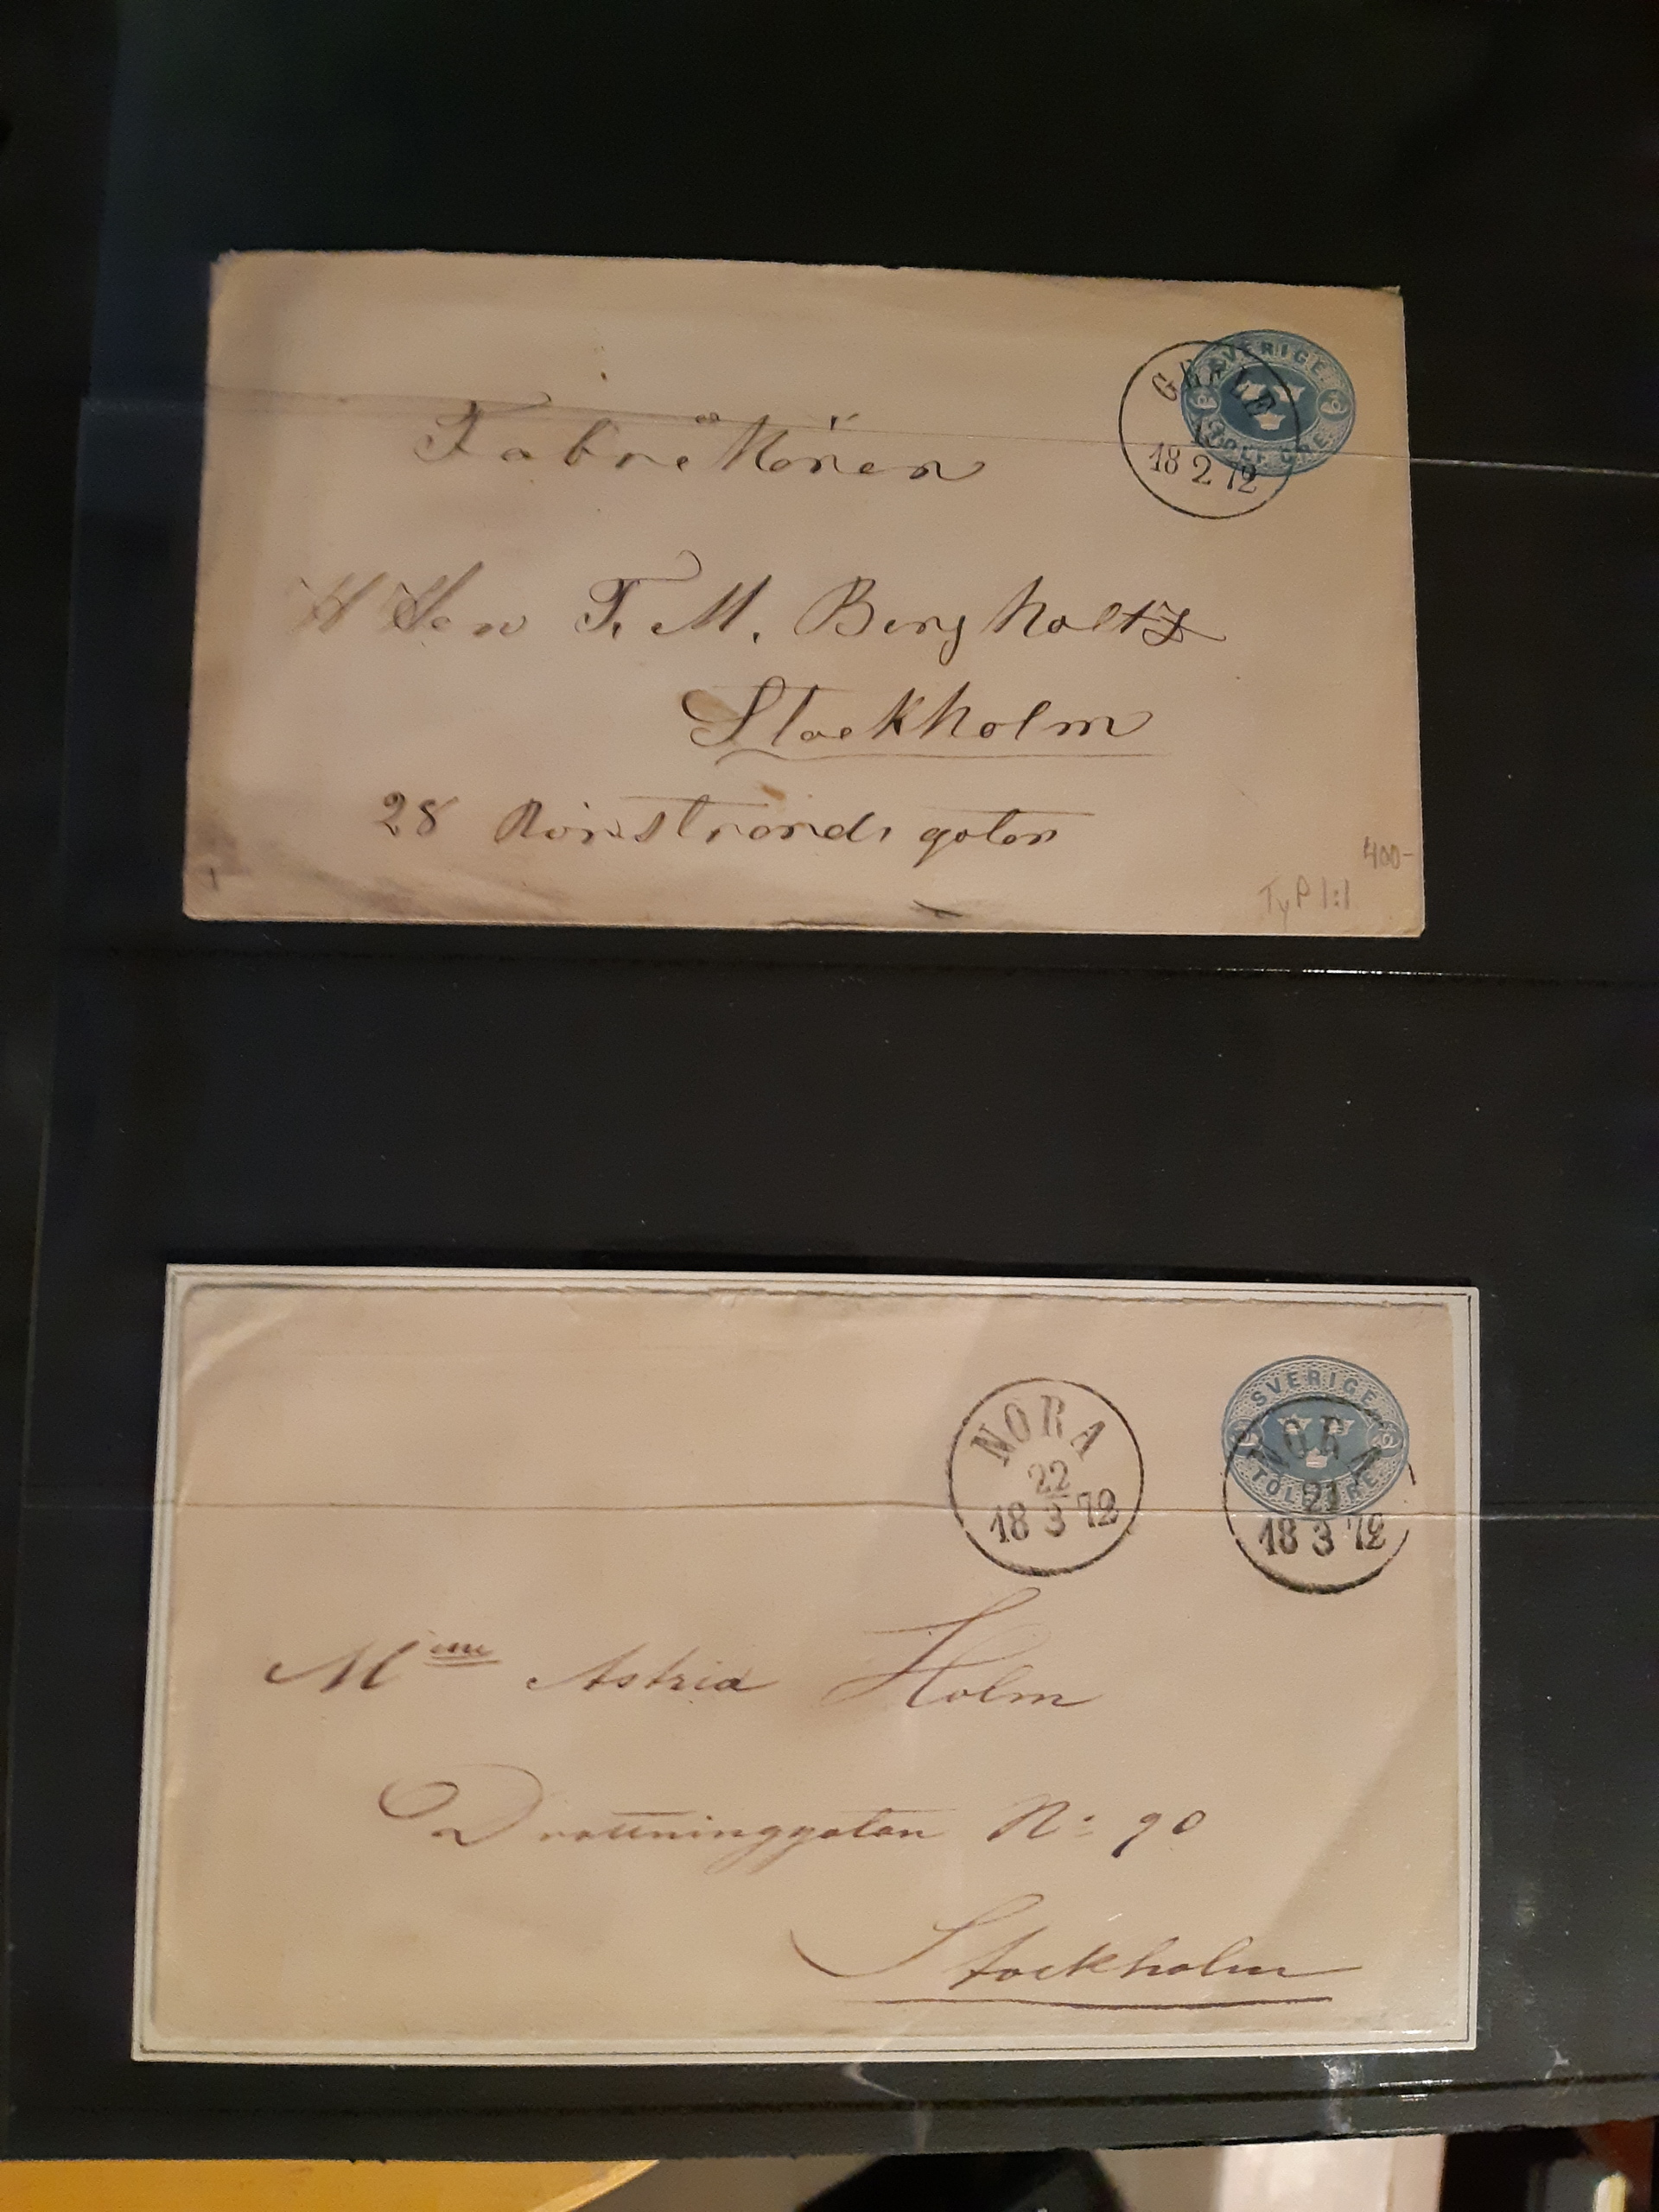 SVERIGE
12 12
TOLF ÖRE
GEFLE
18 2 72
Fabrikören
H Herr F. M. Bergholtz
Stockholm
28 Rörstrandsgatan
400-
TyP 1:1
SVERIGE
12 12
TOLF ÖRE
NORA
22
18 3 72
NORA
21
18 3 72
Mme Astrid Holm
Drottninggatan No: 90
Stockholm